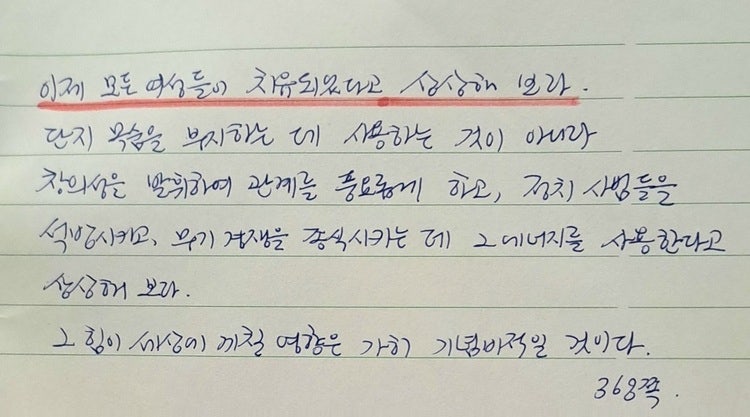 이제 모든 여성들이 치유되었다고 상상해 보라.
단지 목숨을 부지하는 데 사용하는 것이 아니라
창의성을 발휘하여 관계를 풍요롭게 하고, 정치 사범들을
석방시키고, 무기 경쟁을 종식시키는 데 그 에너지를 사용한다고
상상해 보라.
그 힘이 세상에 끼칠 영향은 가히 기념비적일 것이다.
368쪽.